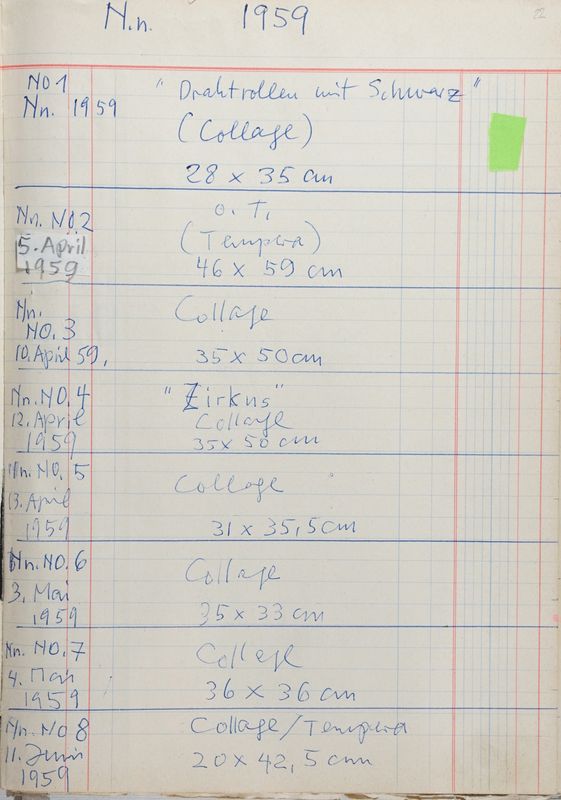 N.n. 1959
22
NO 1 "Drahtrollen mit Schwarz"
Nn. 1959
(Collage)
28 x 35 cm
Nn. NO.2 O.T.
5. April (Tempera)
1959 46 x 59 cm
Nn. Collage
NO. 3
10. April 59, 35 x 50 cm
Nn. NO. 4 "Zirkus"
12. April Collage
1959 35 x 50 cm
Nn. NO. 5 Collage
13. April
1959 31 x 35,5 cm
Nn. NO. 6 Collage
3. Mai
1959 35 x 33 cm
Nn. NO. 7 Collage
4. Mai 36 x 36 cm
1959
Nn. NO 8 Collage/Tempera
11. Juni 20 x 42,5 cm
1959